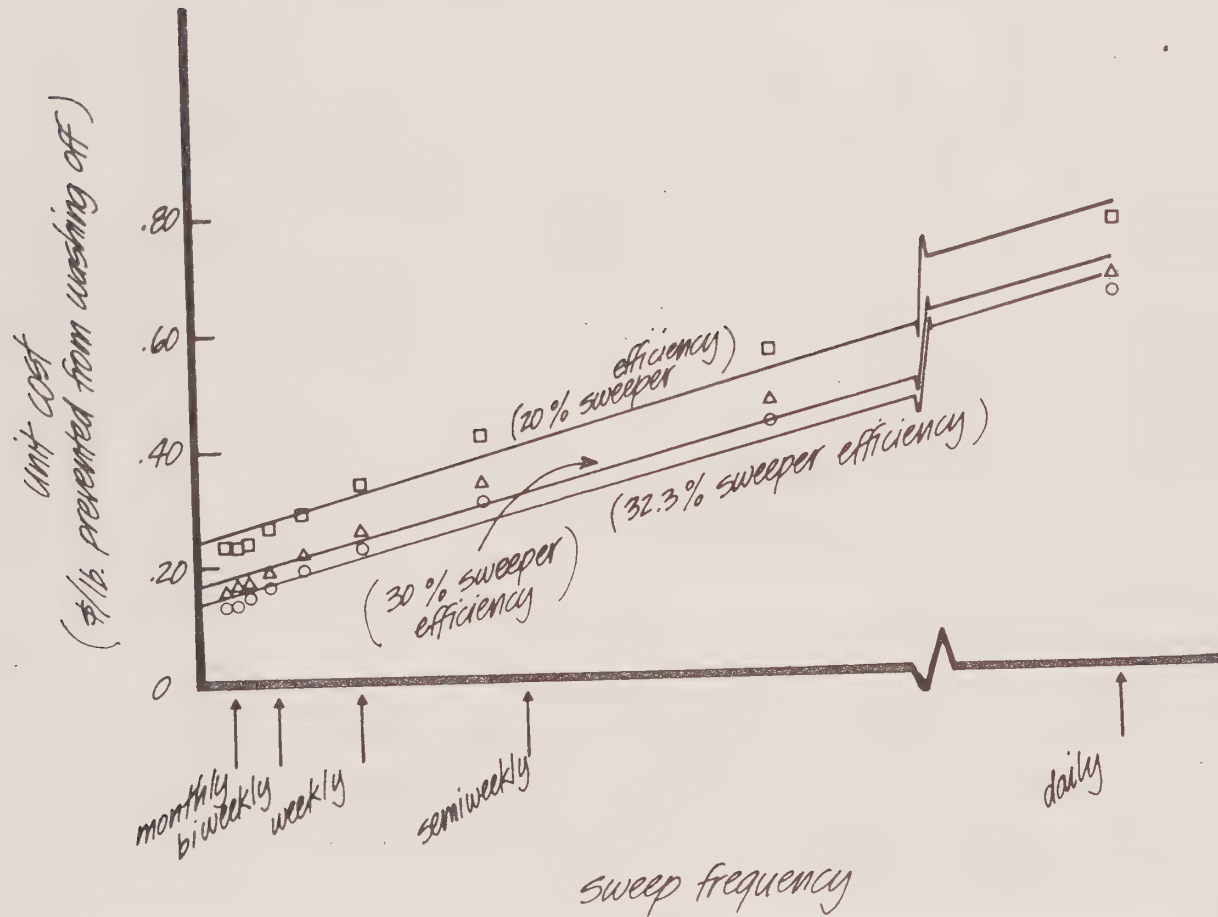 unit cost
($/lb. prevented from washing off)
.80
.60
.40
.20
0
efficiency)
(20% sweeper
(32.3% sweeper efficiency)
(30% sweeper
efficiency)
monthly
biweekly
weekly
semiweekly
daily
sweep frequency